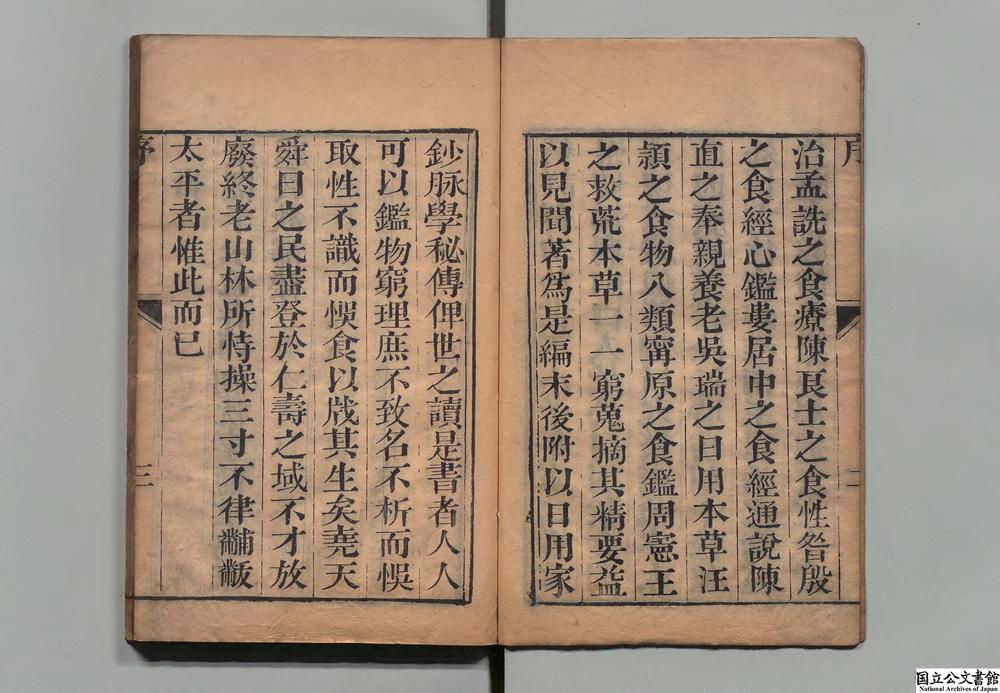 序
治孟詵之食療陳艮士之食性昝殷
之食經心鑑婁居中之食經通說陳
直之奉親養老吳瑞之日用本草汪
頴之食物八類寗原之食鑑周憲王
之救荒本草一一窮蒐摘其精要益
以見聞著爲是編末後附以日用家
鈔脉學秘傳俾世之讀是書者人人
可以鑑物窮理庶不致名不析而悞
取性不識而悞食以戕其生矣堯天
舜日之民盡登於仁壽之域不才放
廢終老山林所恃操三寸不律黼黻
太平者惟此而已
序
三
国立公文書館
National Archives of Japan